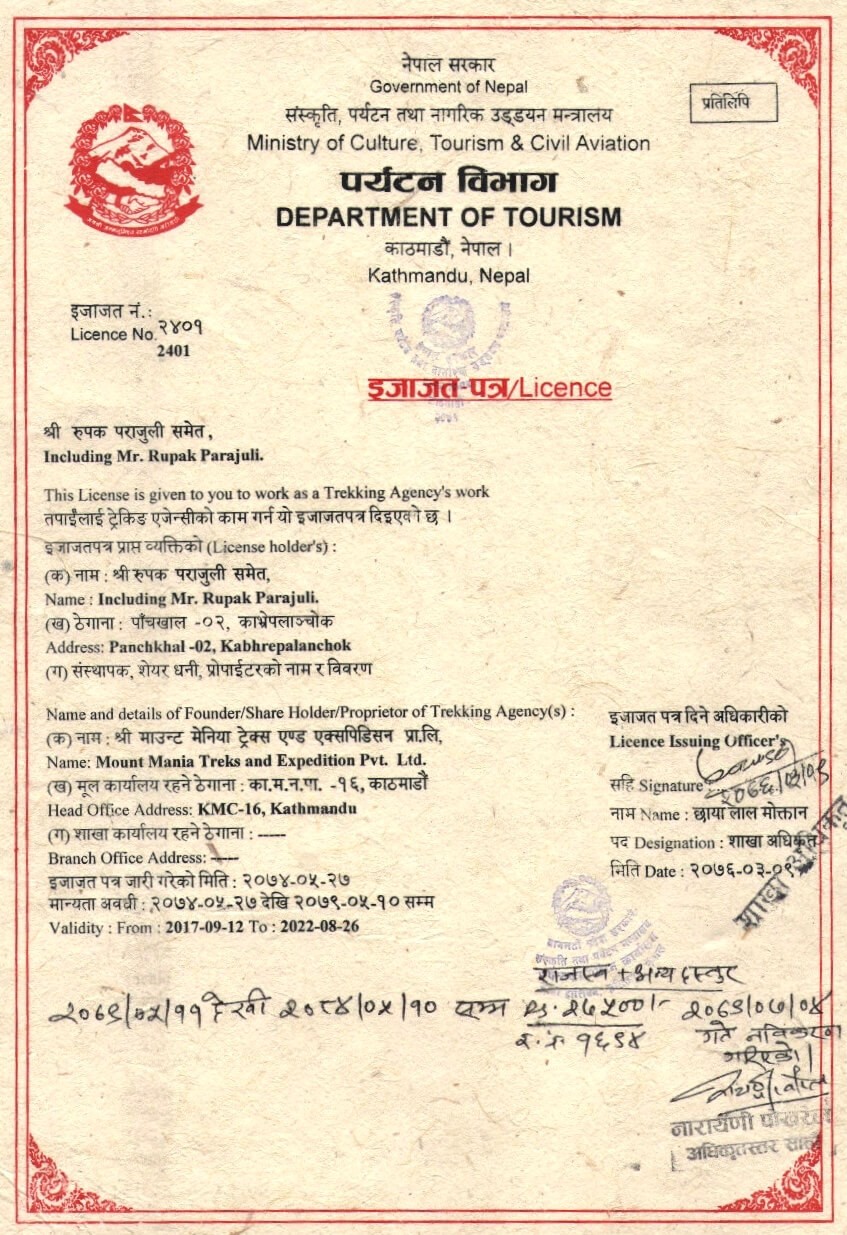 नेपाल सरकार
Government of Nepal
संस्कृति, पर्यटन तथा नागरिक उड्डयन मन्त्रालय
प्रतिलिपि
Ministry of Culture, Tourism & Civil Aviation
पर्यटन विभाग
DEPARTMENT OF TOURISM
काठमाडौं, नेपाल ।
Kathmandu, Nepal
इजाजत नं.:
Licence No. २४०१
2401
इजाजत-पत्र/Licence
श्री रुपक पराजुली समेत,
Including Mr. Rupak Parajuli.
This License is given to you to work as a Trekking Agency's work
तपाईंलाई ट्रेकिङ एजेन्सीको काम गर्न यो इजाजतपत्र दिइएको छ ।
इजाजतपत्र प्राप्त व्यक्तिको (License holder's) :
(क) नाम : श्री रुपक पराजुली समेत,
Name : Including Mr. Rupak Parajuli.
(ख) ठेगाना : पाँचखाल -०२, काभ्रेपलाञ्चोक
Address: Panchkhal -02, Kabhrepalanchok
(ग) संस्थापक, शेयर धनी, प्रोपाईटरको नाम र विवरण
Name and details of Founder/Share Holder/Proprietor of Trekking Agency(s) :
(क) नाम : श्री माउन्ट मेनिया ट्रेक्स एण्ड एक्सपिडिसन प्रा.लि,
Name: Mount Mania Treks and Expedition Pvt. Ltd.
(ख) मूल कार्यालय रहने ठेगाना : का.म.न.पा. -१६, काठमाडौं
Head Office Address: KMC-16, Kathmandu
(ग) शाखा कार्यालय रहने ठेगाना : -----
Branch Office Address: -----
इजाजत पत्र जारी गरेको मिति : २०७४-०५-२७
मान्यता अवधी : २०७४-०५-२७ देखि २०७९-०५-१० सम्म
Validity : From : 2017-09-12 To : 2022-08-26
इजाजत पत्र दिने अधिकारीको
Licence Issuing Officer's
सहि Signature
२०७६/०३/०९
नाम Name : छाया लाल मोक्तान
पद Designation : शाखा अधिकृत
मिति Date : २०७६-०३-०९
शाखा अधिकृत
राजस्व + अन्य दस्तुर
२०७९/०५/११ देखी २०८४/०५/१० सम्म Rs. २६५००/- २०७९/०७/०४
र.नं १६९४
गते नविकरण
गरिएको।
नारायणी पोखरेल
अधिकृतस्तर सातौं